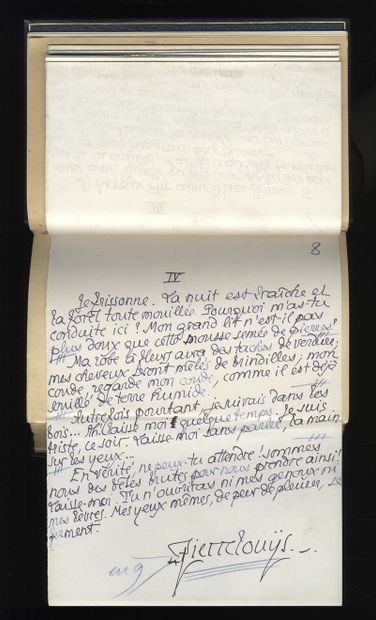 8
IV
Je frissonne. La nuit est fraîche et
la forêt toute mouillée. Pourquoi m'as-tu
conduite ici ? Mon grand lit n'est-il pas
plus doux que cette mousse semée de pierres ?
Ma robe à fleurs aura des taches de verdure ;
mes cheveux seront mêlés de brindilles ; mon
coude, regarde mon coude, comme il est déjà
souillé de terre humide.
Autrefois pourtant, je suivais dans les
bois... Ah ! laisse moi quelque temps. Je suis
triste, ce soir. Laisse-moi sans parler, la main
sur les yeux...
En vérité, ne peux-tu attendre ! sommes
nous des bêtes brutes pour nous prendre ainsi !
Laisse-moi. Tu n'ouvriras ni mes genoux ni
mes lèvres. Mes yeux mêmes, de peur de pleurer, se
ferment.
Pierre Louÿs